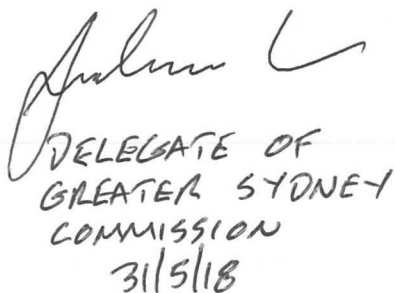 DELEGATE OF
GREATER SYDNEY
COMMISSION
31/5/18